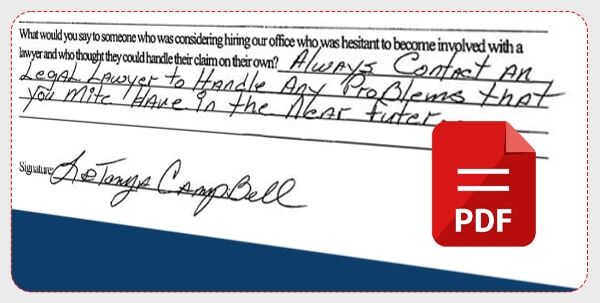 What would you say to someone who was considering hiring our office who was hesitant to become involved with a
lawyer and who thought they could handle their claim on their own? Always Contact An
Legal Lawyer to Handle Any Problems that
you mite Have in the Near futer
Signature: LaTonya Campbell
PDF